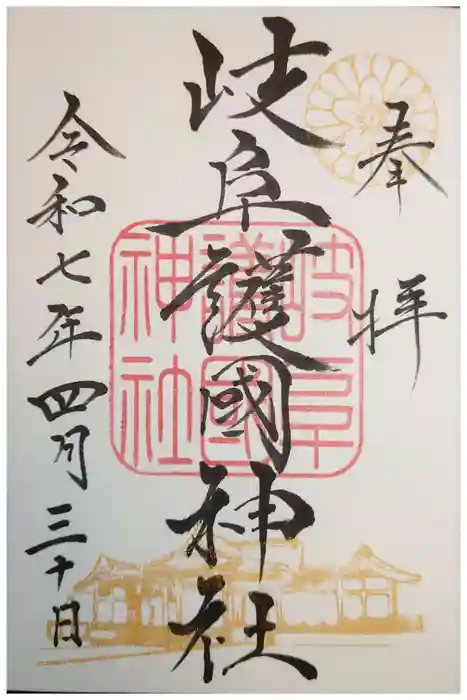 奉拝
岐阜護國神社
岐阜護國神社
令和七年四月三十日